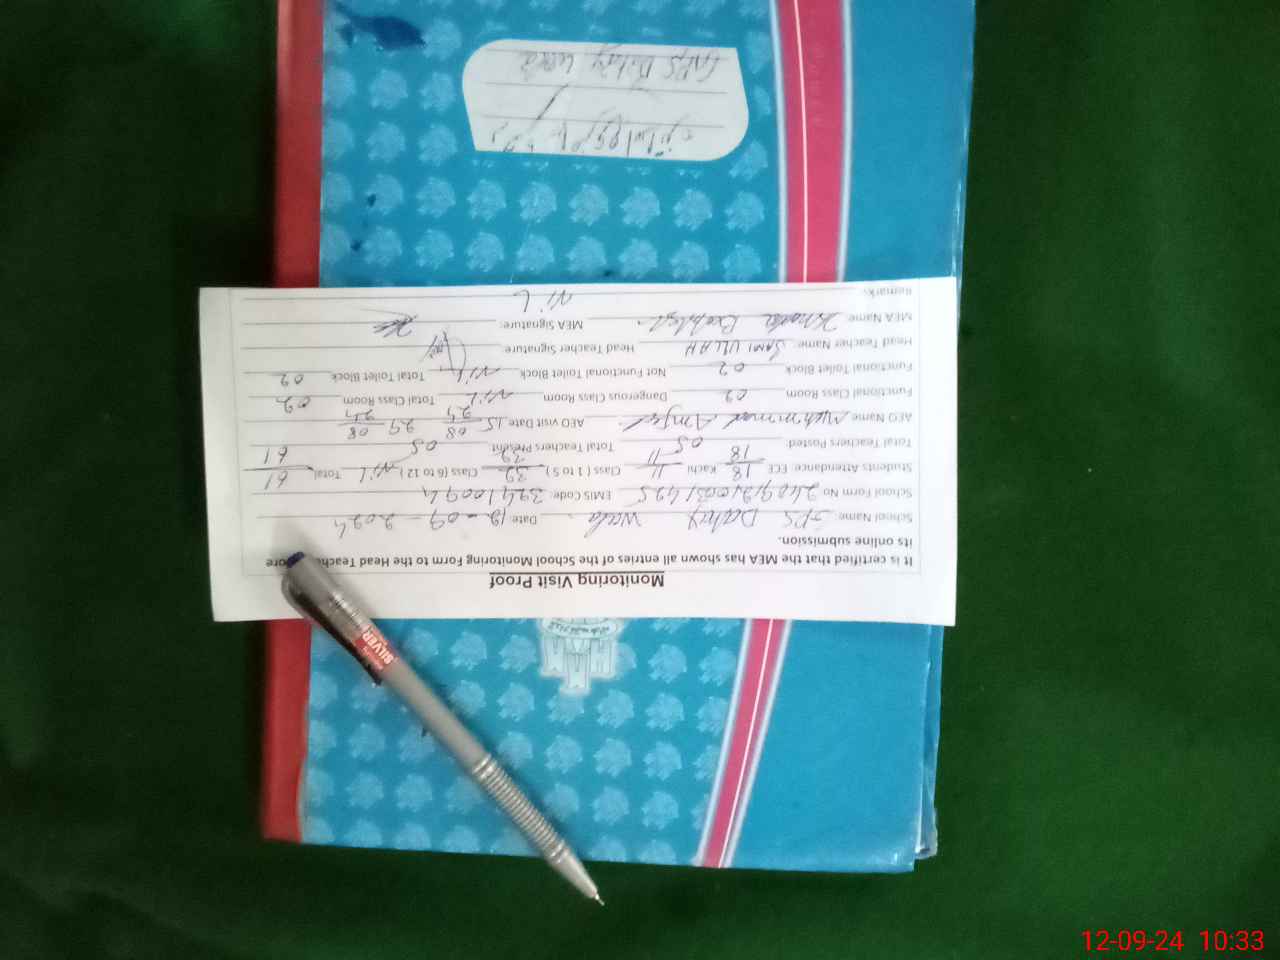 Monitoring Visit Proof
It is certified that the MEA has shown all entries of the School Monitoring Form to the Head Teacher
its online submission.
School Name: GPS Wala Date: 12-09-2024
School Form No EMIS Code: 39410094
Students Attendance: ECE 18/18 Kachi 11/11 Class (1 to 5) 32/32 Class (6 to 12) Nil Total 61/61
Total Teachers Posted: 05 Total Teachers Present 05
AEO Name Muhammad Amjad AEO visit Date 15/08/24 29/08/24
Functional Class Room 02 Dangerous Class Room Nil Total Class Room 02
Functional Toilet Block 02 Not Functional Toilet Block Nil Total Toilet Block 02
Head Teacher Name: SAMI ULLAH Head Teacher Signature:
MEA Name: MEA Signature:
Remarks: Nil
GPS Wala
SILVER
12-09-24 10:33